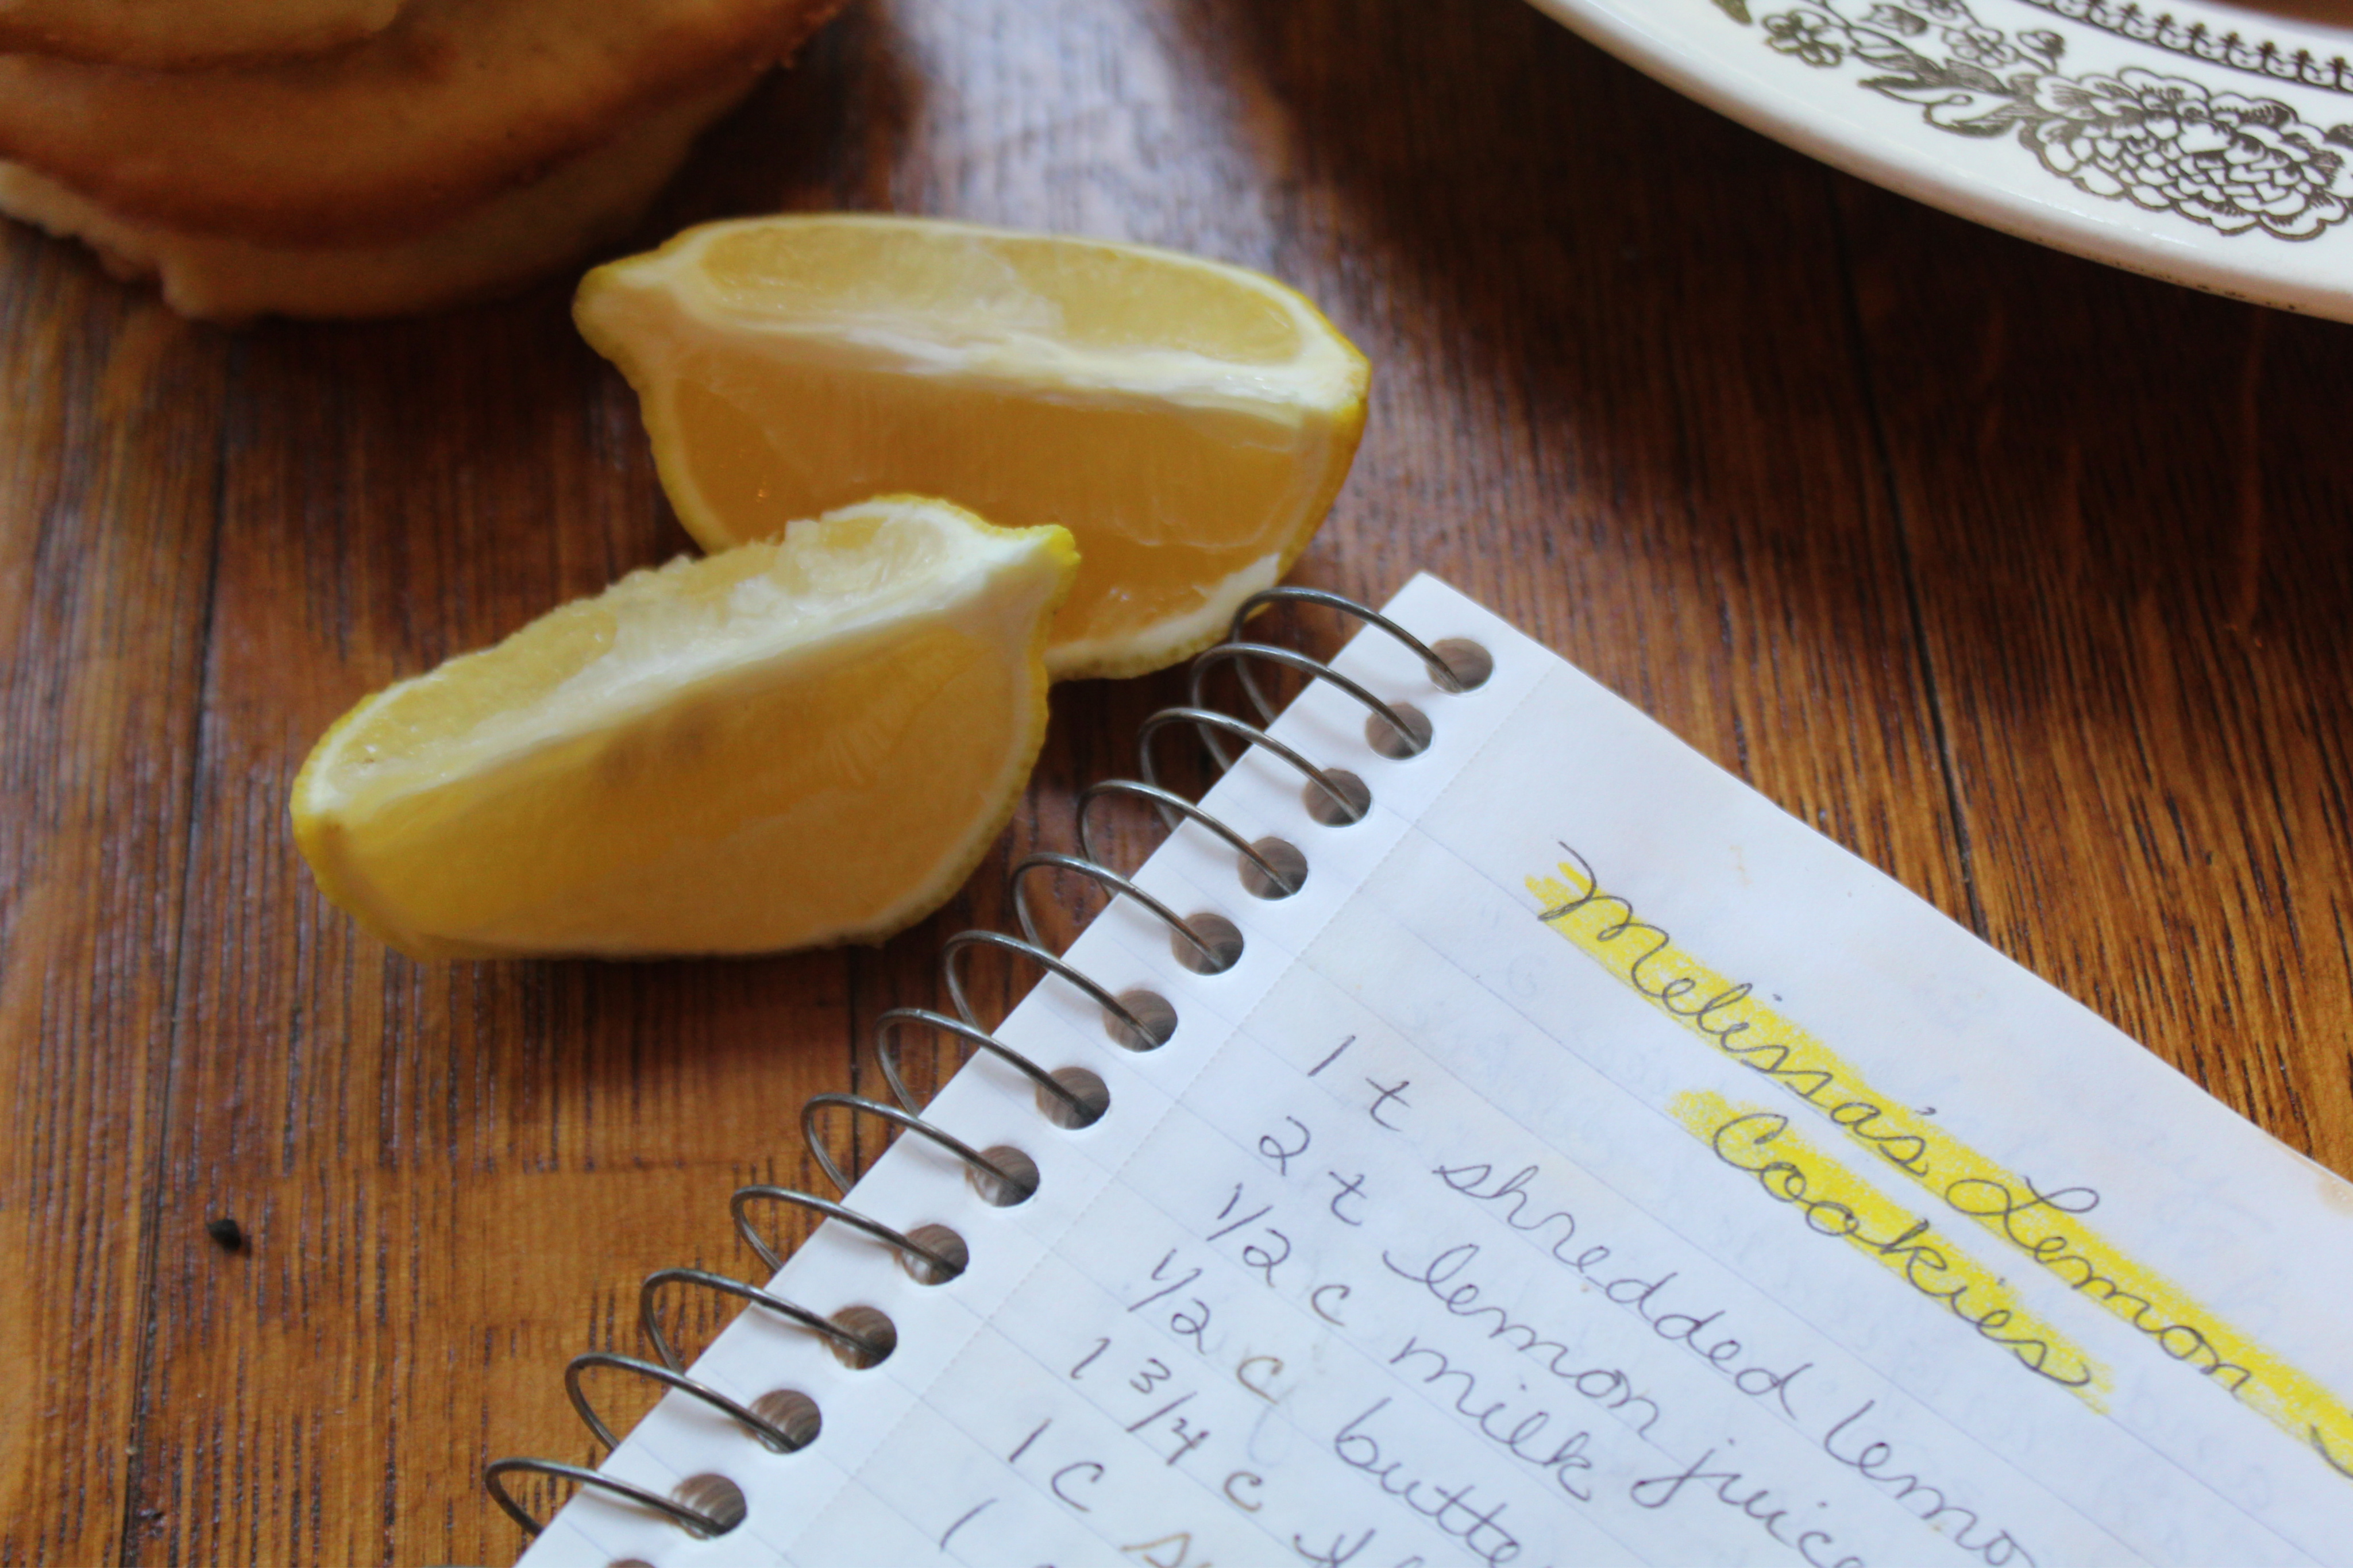 Melissa's Lemon
Cookies
1 t shredded lemo
2 t lemon juice
1/2 c milk
1/2 c butte
1 3/4 c
1 C
1